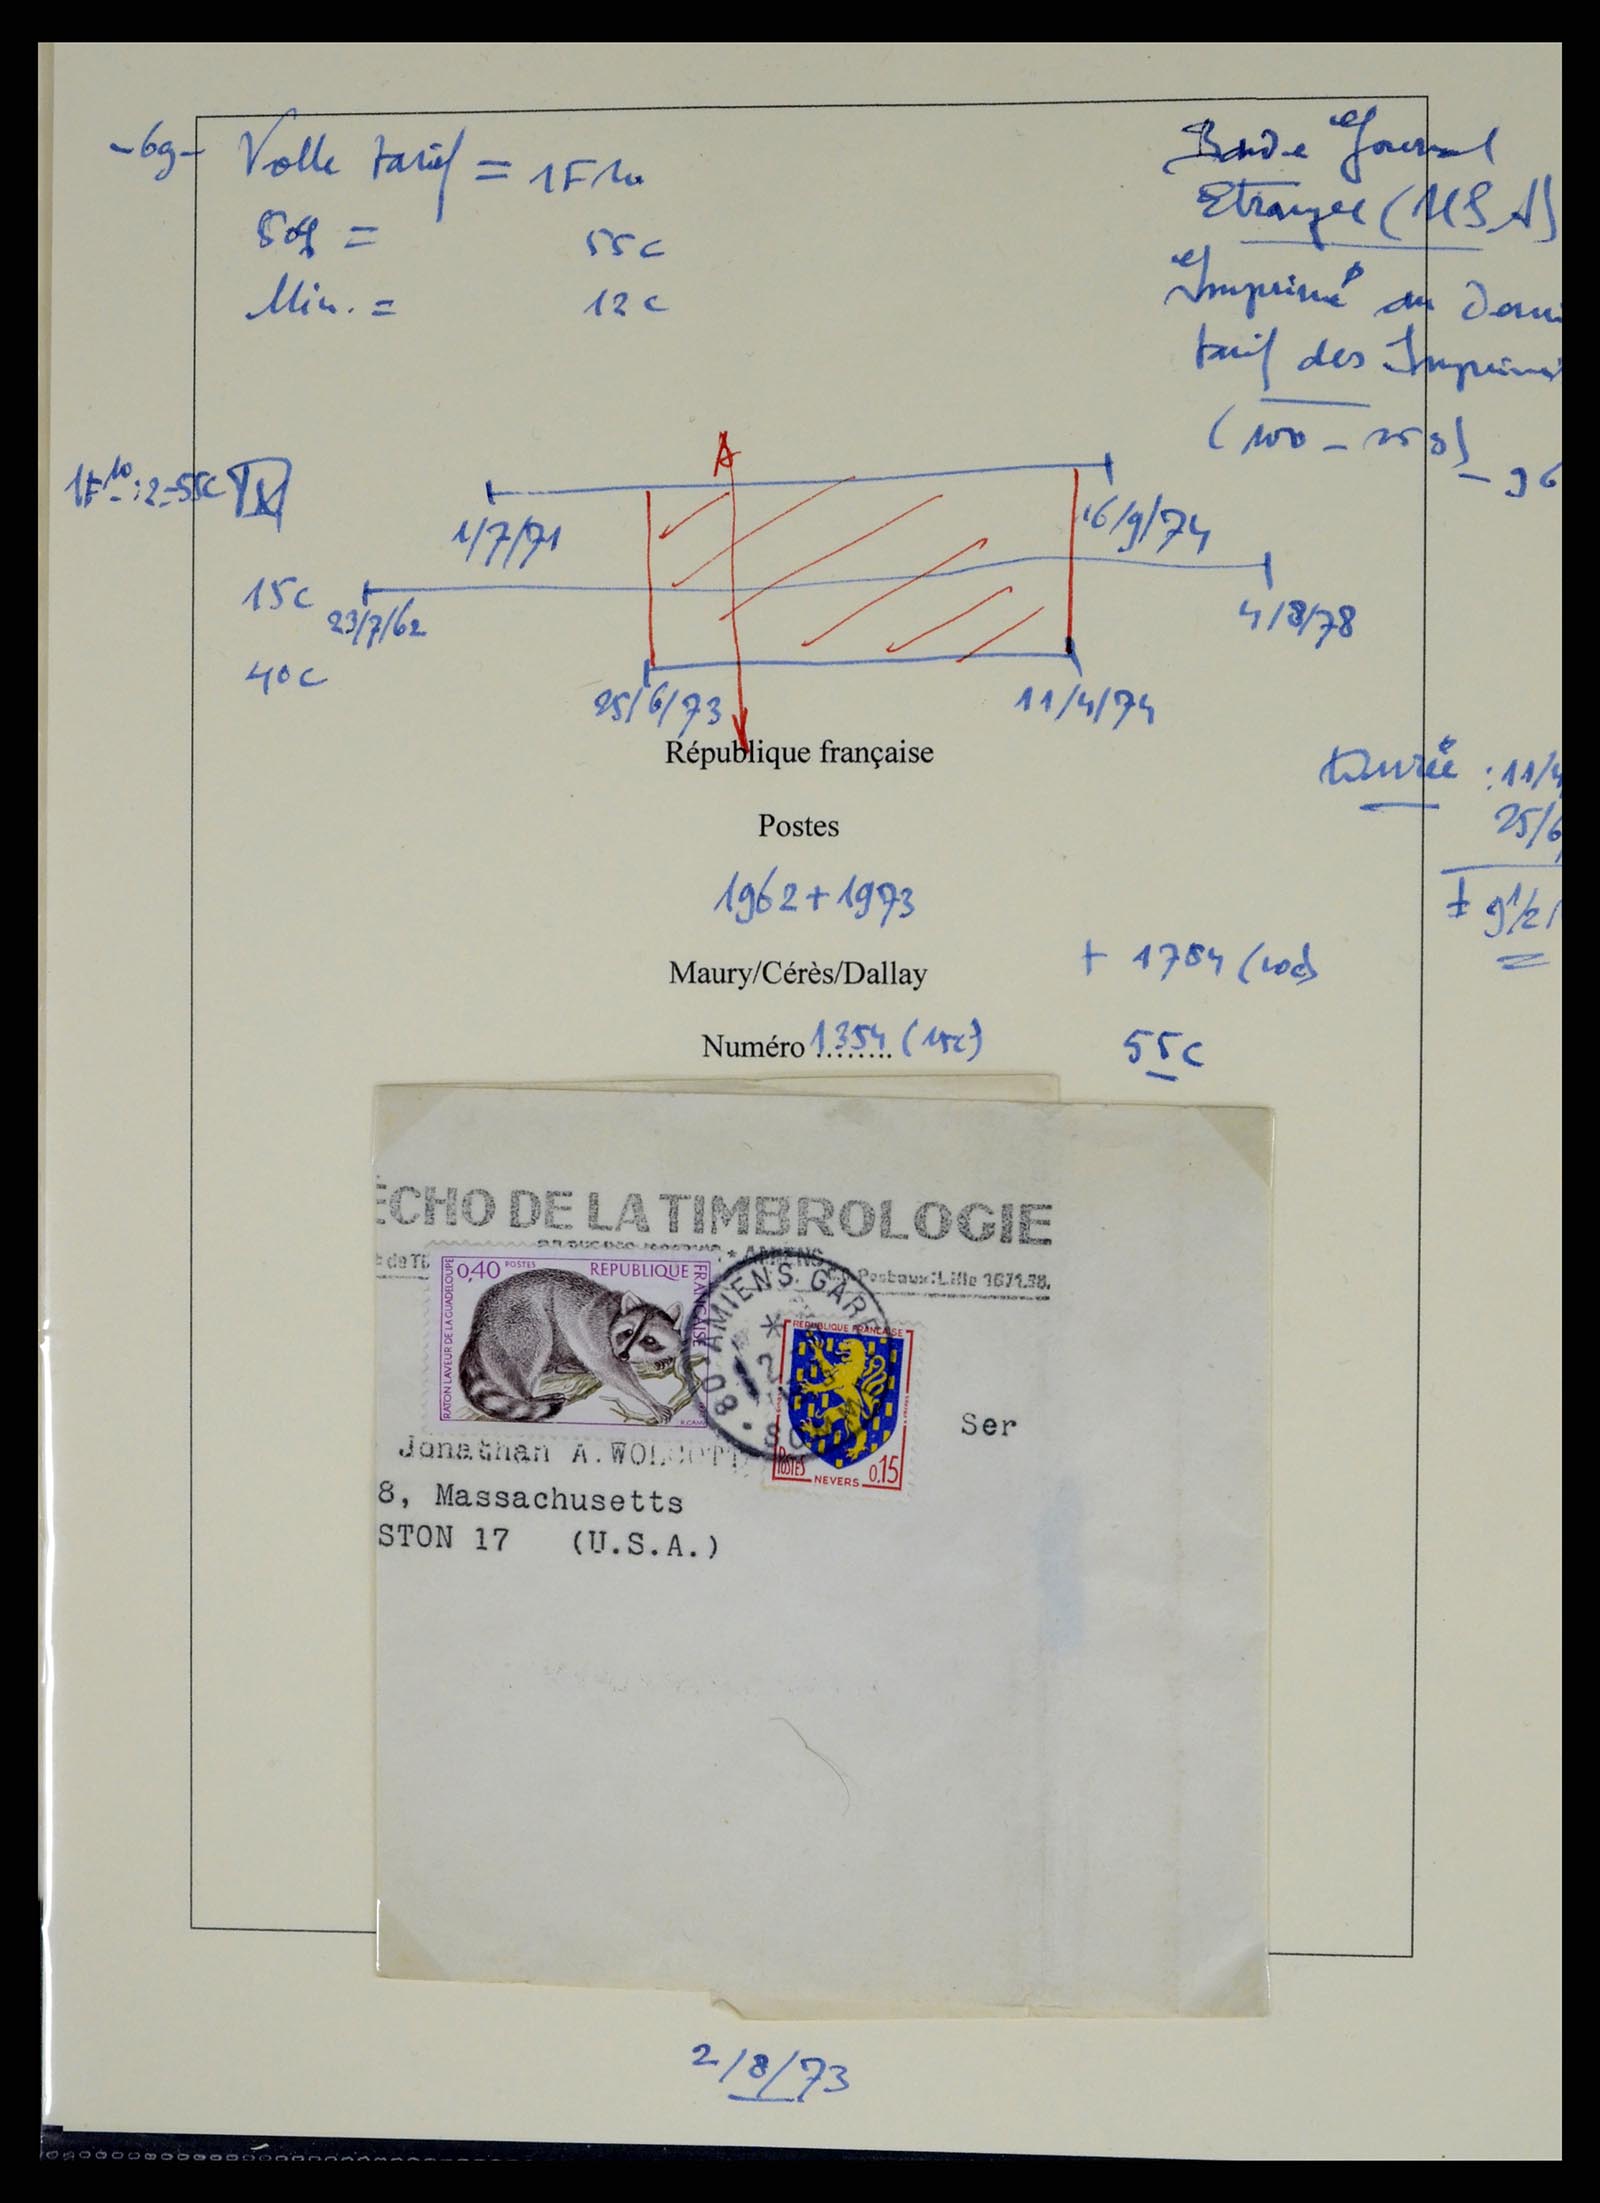 -69- Volle tarief = 1F10
50% = 55c
Min. = 12c
Bande Journal
Etranger (USA)
Imprimé au
tarif des
(100 -
- 96
1F10:2=55c
A
1/7/71
16/9/74
15c
23/7/62
4/8/78
40c
25/6/73
11/4/74
République française
Durée : 11/4
25/6
Postes
± 9 1/2
1962+1973
Maury/Cérès/Dallay
+ 1754 (40c)
Numéro ........ 1354 (15c)
55c
ÉCHO DE LA TIMBROLOGIE
* AMIENS
Postaux: Lille
0,40 POSTES REPUBLIQUE FRANÇAISE
RATON LAVEUR DE LA GUADELOUPE
80 AMIENS GARE
2
REPUBLIQUE FRANCAISE
POSTES NEVERS 0,15
Ser
Jonathan A. WOLCOTT
8, Massachusetts
STON 17 (U.S.A.)
2/8/73